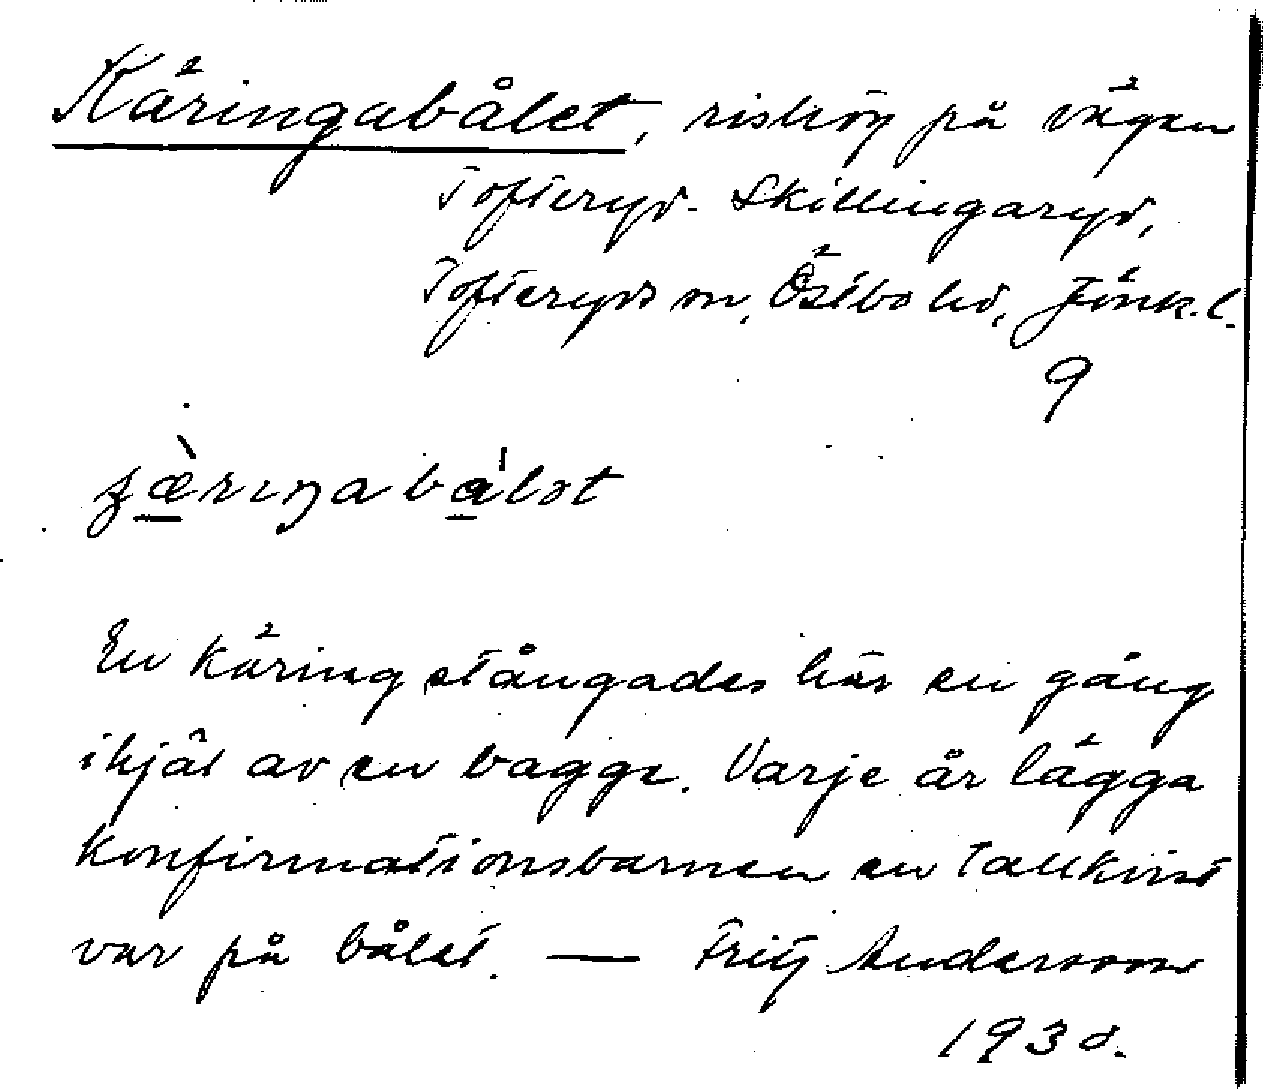 Käringabålet, rishög på vägen
Tofteryd - Skillingaryd,
Tofteryds sn, Östbo hd, Jönk. l.
9
ʒæ̀riŋabålət
En käring stångades här en gång
ihjäl av en bagge. Varje år lägga
konfirmationsbarnen en tallkvist
var på bålet. — Fritz Andersson
1930.